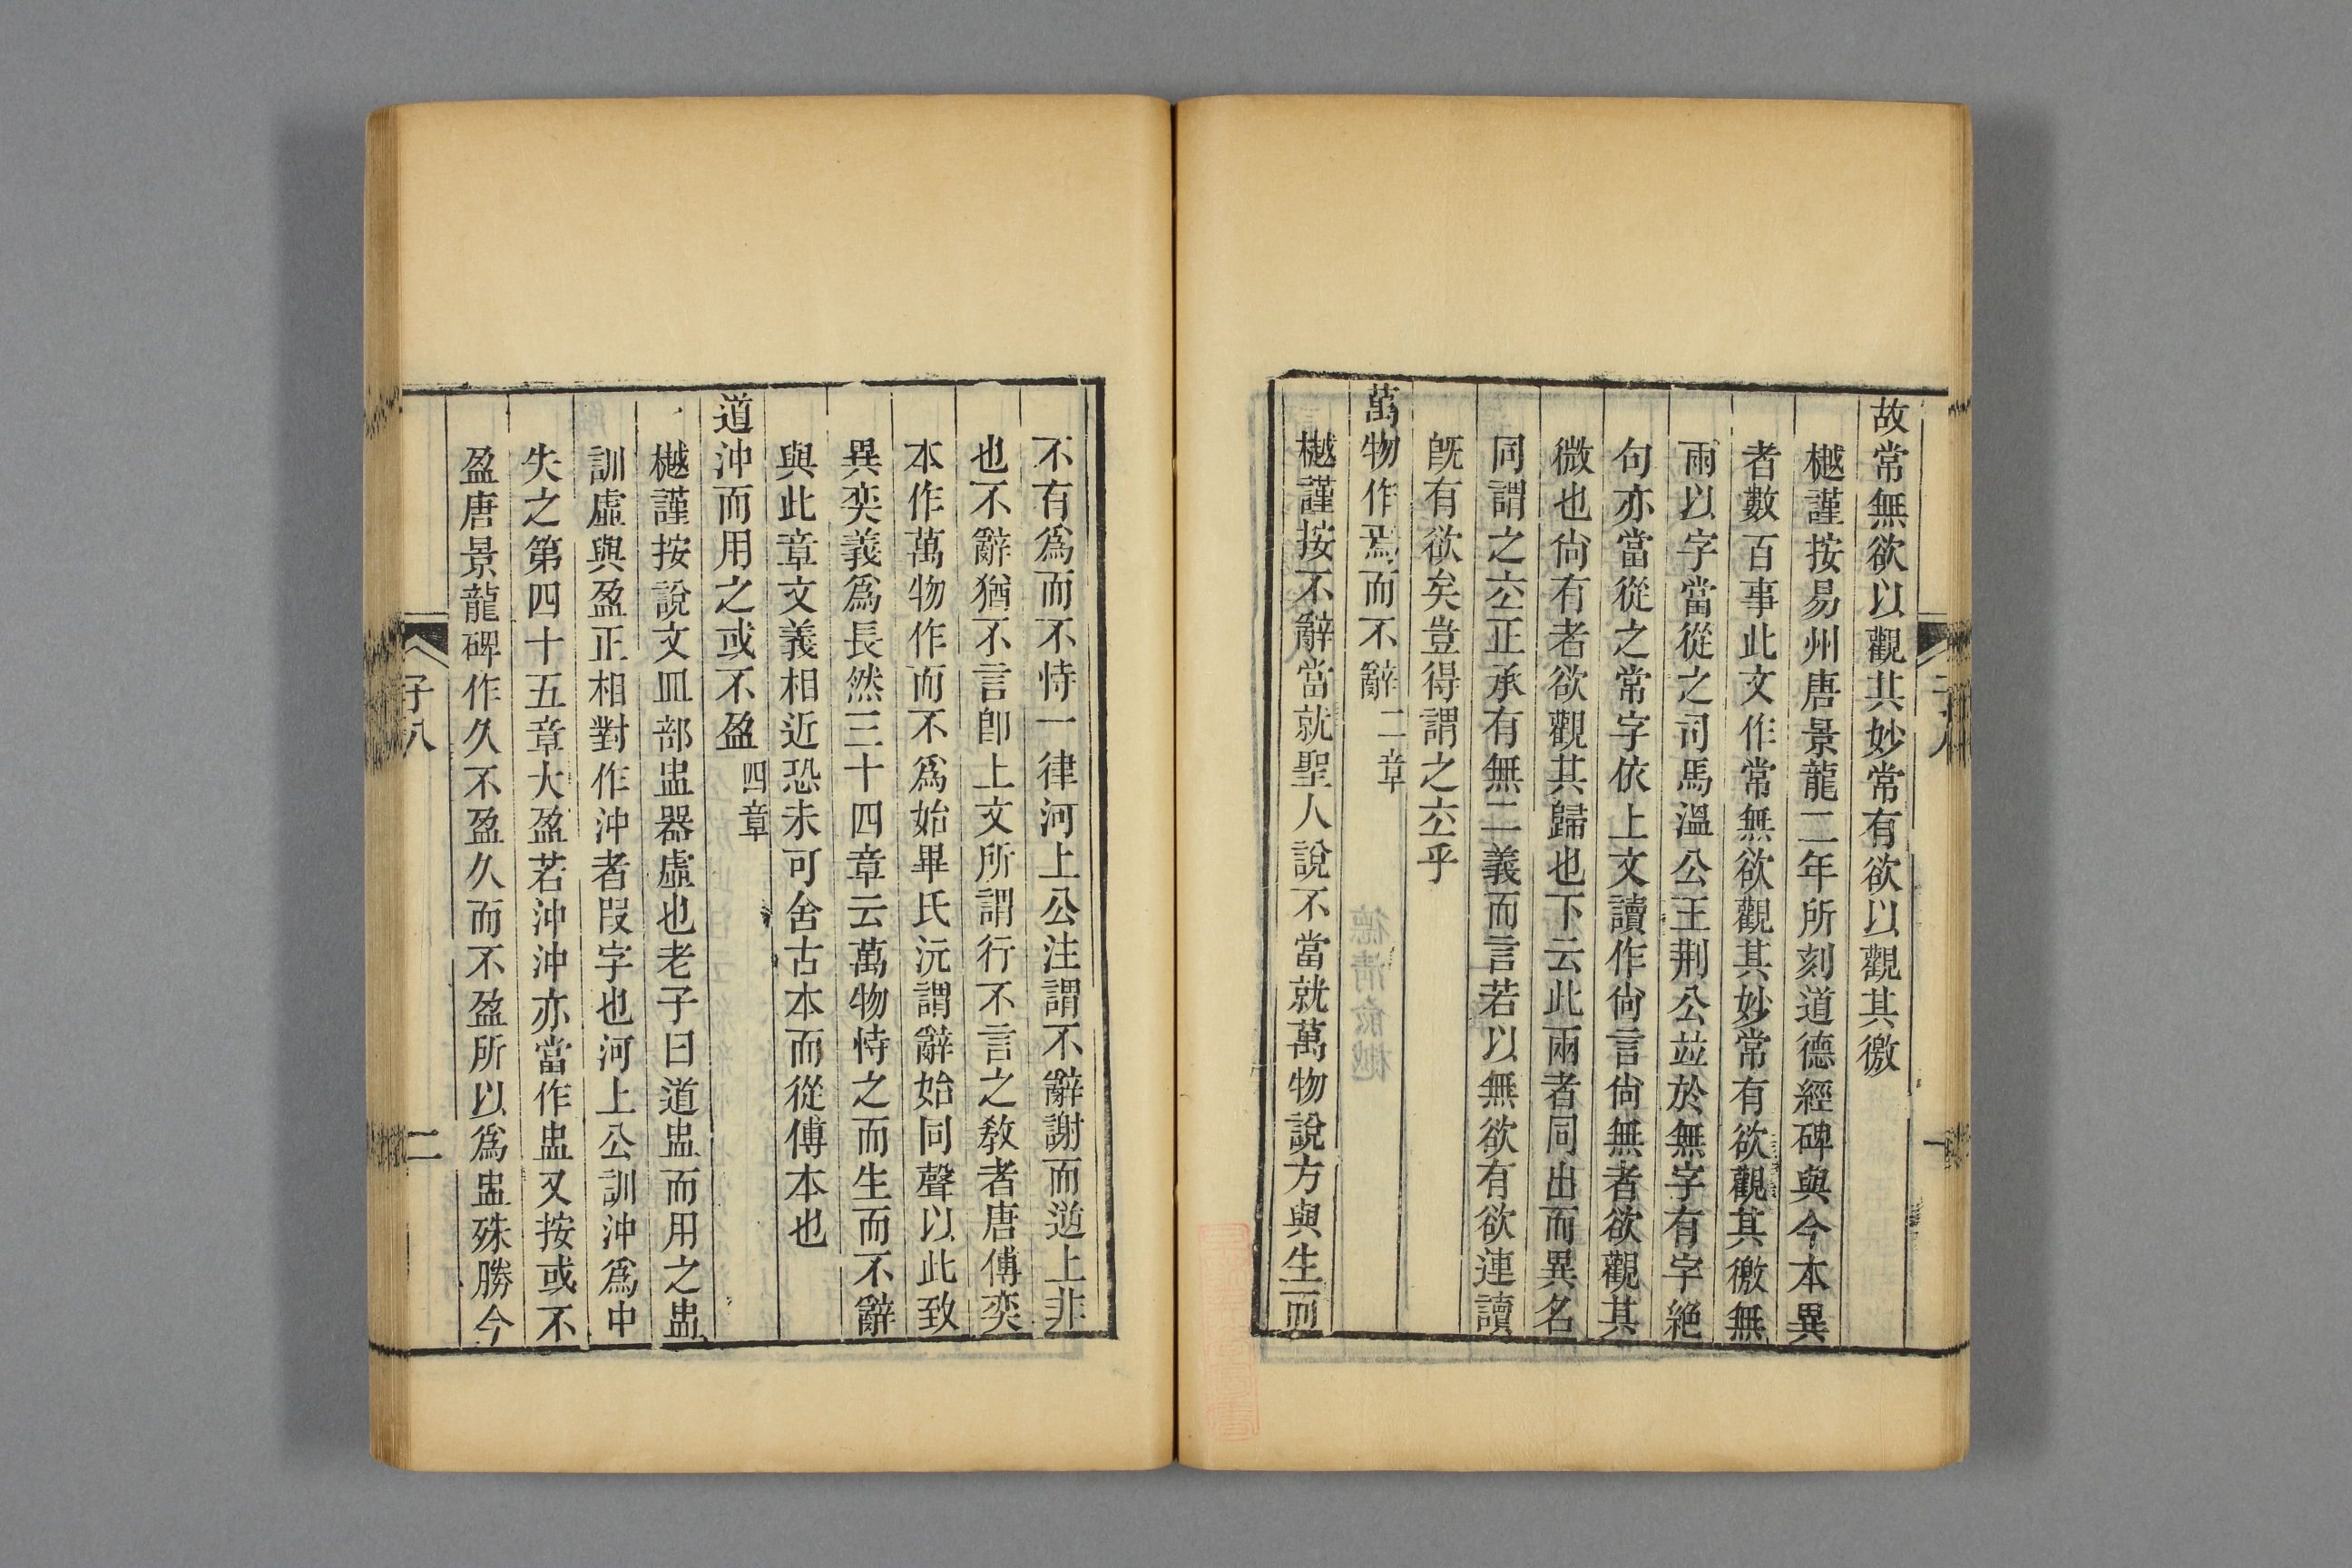 故常無欲以觀其妙常有欲以觀其徼
樾謹按易州唐景龍二年所刻道德經碑與今本異
者數百事此文作常無欲觀其妙常有欲觀其徼無
兩以字當從之司馬溫公王荆公竝於無字有字絶
句亦當從之常字依上文讀作尙言尙無者欲觀其
微也尙有者欲觀其歸也下云此兩者同出而異名
同謂之玄正承有無二義而言若以無欲有欲連讀
旣有欲矣豈得謂之玄乎
萬物作焉而不辭二章
樾謹按不辭當就聖人說不當就萬物說方與生而
不有爲而不恃一律河上公注謂不辭謝而逆止非
也不辭猶不言卽上文所謂行不言之敎者唐傅奕
本作萬物作而不爲始畢氏沅謂辭始同聲以此致
異奕義爲長然三十四章云萬物恃之而生而不辭
與此章文義相近恐未可舍古本而從傅本也
道沖而用之或不盈四章
樾謹按說文皿部盅器虛也老子曰道盅而用之盅
訓虛與盈正相對作沖者叚字也河上公訓沖爲中
失之第四十五章大盈若沖沖亦當作盅又按或不
盈唐景龍碑作久不盈久而不盈所以爲盅殊勝今
子八
二